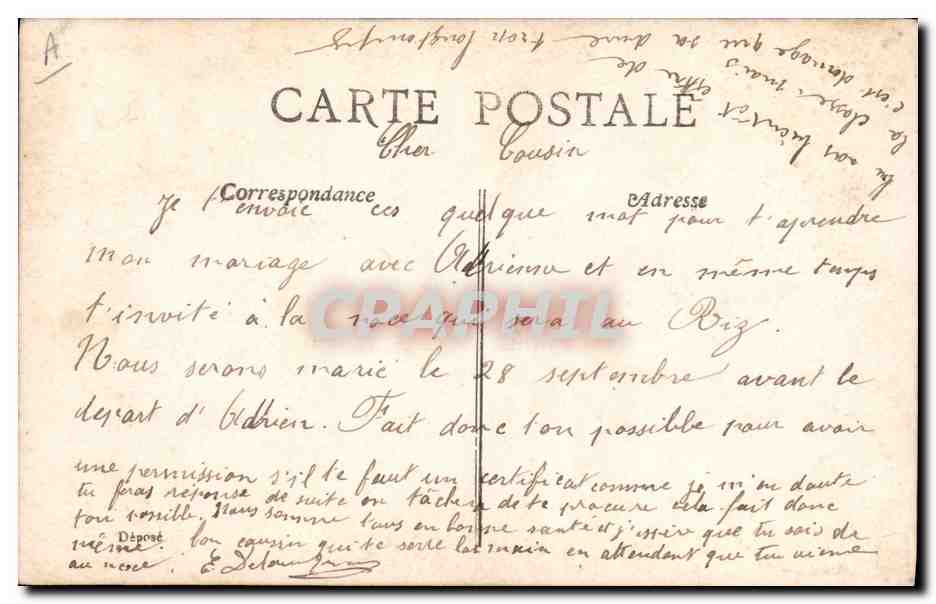 A
CARTE POSTALE
Cher Cousin
Correspondance
Adresse
Je t'envoie ces quelque mot pour t'aprendre
mon mariage avec Adrienne et en même temps
t'invité à la noce qui sera au Riz.
Nous serons marié le 28 septembre avant le
depart d'Adrien. Fait donc ton possible pour avoir
une permission s'il te faut un certificat comme je m'en doute
tu feras réponse de suite on tâchera de te procure cela fait donc
ton possible. Nous somme tous en bonne santé et j'espère que tu sois de
même. Ton cousin qui te serre la main en attendent que tu vienne
au noce. E.
Déposé
tu vas bientôt être de
la classe mais
c'est domage qui sa dure trop longtemps
CRAPHIL